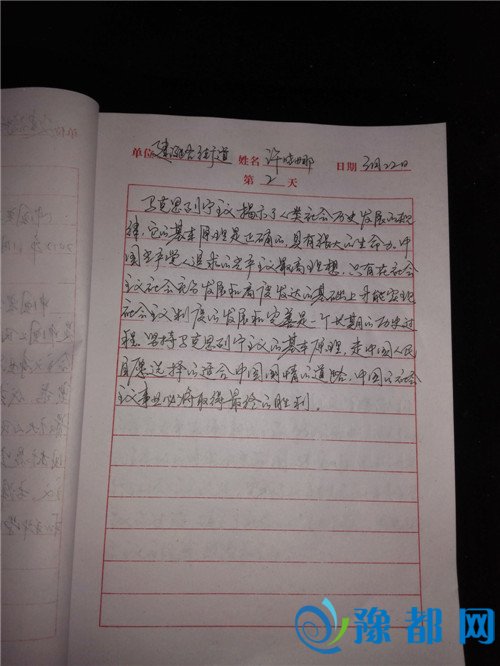 单位 街道 姓名 许 日期 3月22日
第 2 天
马克思列宁主义揭示了人类社会历史发展的规
律,它的基本原理是正确的,具有强大的生命力。中
国共产党人追求的共产主义最高理想,只有在社会
主义社会充分发展和高度发达的基础上才能实现
社会主义制度的发展和完善是一个长期的历史过
程。坚持马克思列宁主义的基本原理,走中国人民
自愿选择的适合中国国情的道路,中国的社会
主义事业必将取得最终的胜利。
豫都网